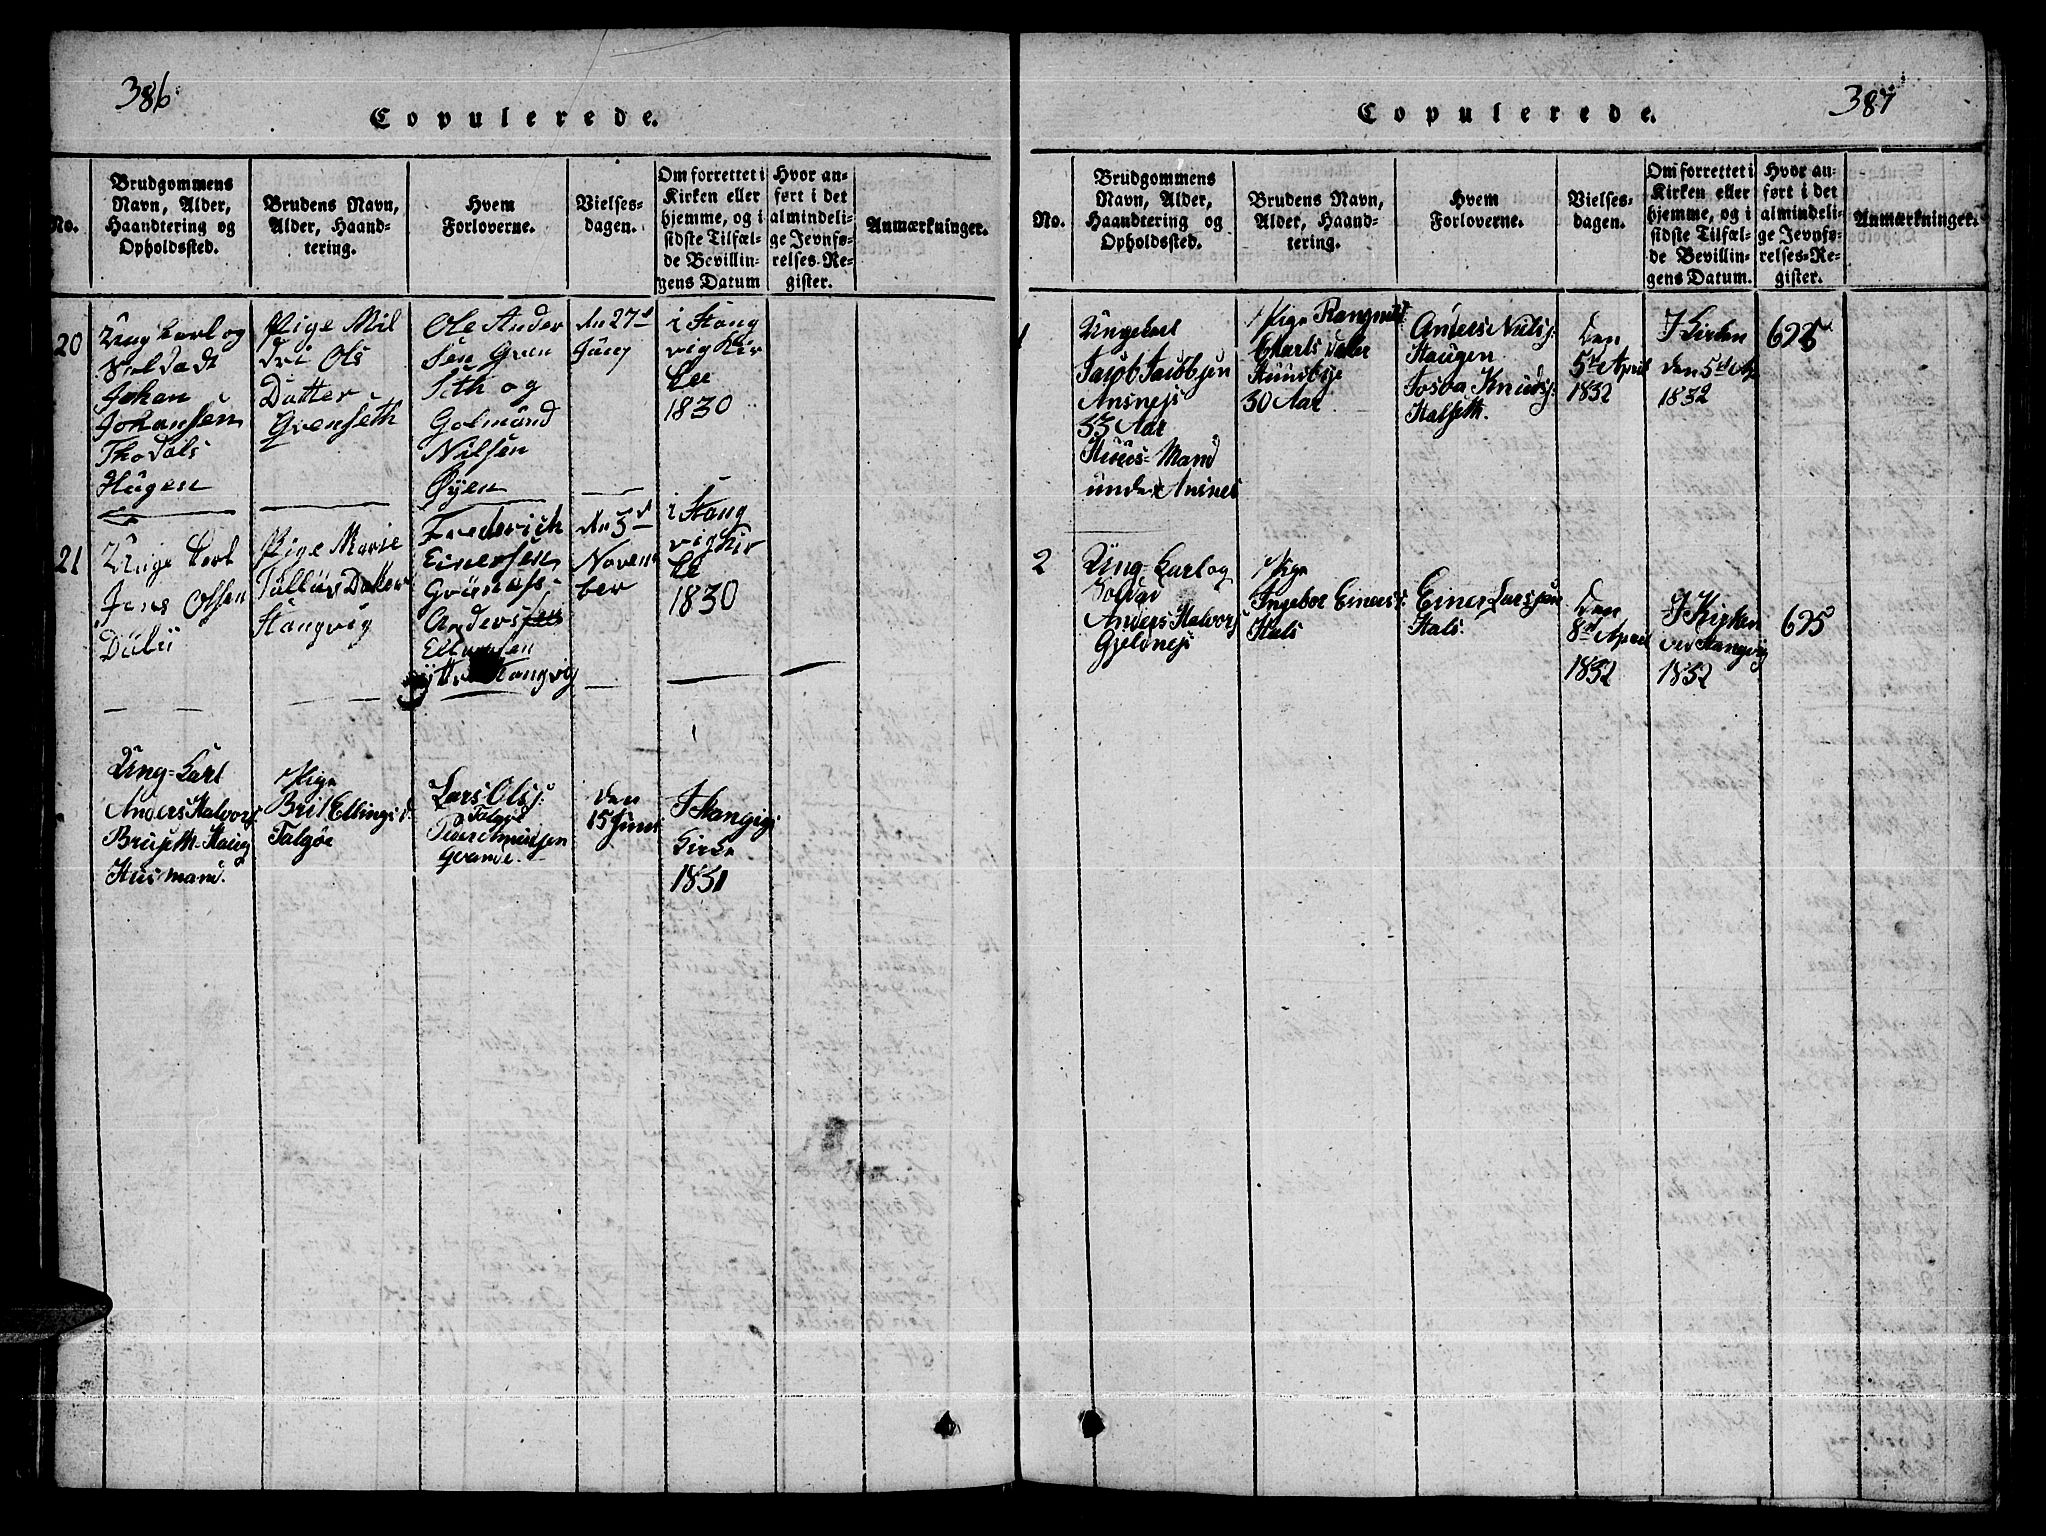 386
Copulerede.
No.
Brudgommens
Navn, Alder,
Haandtering og
Opholdssted.
Brudens Navn,
Alder, Haand-
tering.
Hvem
Forloverne.
Vielses-
dagen.
Om forrettet i
Kirken eller
hjemme, og i
sidste Tilfæl-
de Bevillin-
gens Datum
Hvor an-
ført i det
almindeli-
ge Jevnfø-
relses-Re-
gister.
Anmærkninger.
20
Ung karl og
Soldadt
Johan
Johansen
Thodals
Hugen
Pige Mil
dri Ols
Datter
Qvenseth
Ole Ander
sen Qven
seth og
Golmünd
Nilsen
Øyen
den 27de
Juny
i Stang
vig Kir
ke
1830
21
Unge karl
Jens Olsen
Dalü
Pige Marie
Datter
Stangvig
Frederich
Einersen
Grönnæss
Anders
Ellingsen
Ytter Stangvig
den 5de
Novem
ber
i Stang
vig Kir
ke
1830
Ung-karl
Anders Halvors
Bruseth-Haug
Husmand.
Pige
Brit Ellings d.
Talgøe
Lars Olss:
Talgøe
Qvande.
den
15 Juni
I Stangvigs
Kirke
1831
387
Copulerede.
No.
Brudgommens
Navn, Alder,
Haandtering og
Opholdssted.
Brudens Navn,
Alder, Haand-
tering.
Hvem
Forloverne.
Vielses-
dagen.
Om forrettet i
Kirken eller
hjemme, og i
sidste Tilfæl-
de Bevillin-
gens Datum.
Hvor an-
ført i det
almindeli-
ge Jevnfø-
relses-Re-
gister.
Anmærkninger.
1
Ungekarl
Jacob Jacobsen
Aasnes
33 Aar
Huus-Mand
under Aasnes
Pige Rangnild
Hunsbye
30 Aar
Anders Niels:
Haugen
Knuds:
Halseth.
den
5te April
1832
I Kirken
den 5te Ap
1832
625
2
Ung-karl og
Soldat
Anders Halvors
Gjeldnes
Pige
Ingebor Einers:
Hals
Einer Larssøn
Hals.
den
8de April
1832
I Kirken
ved Stangvig
1832
625